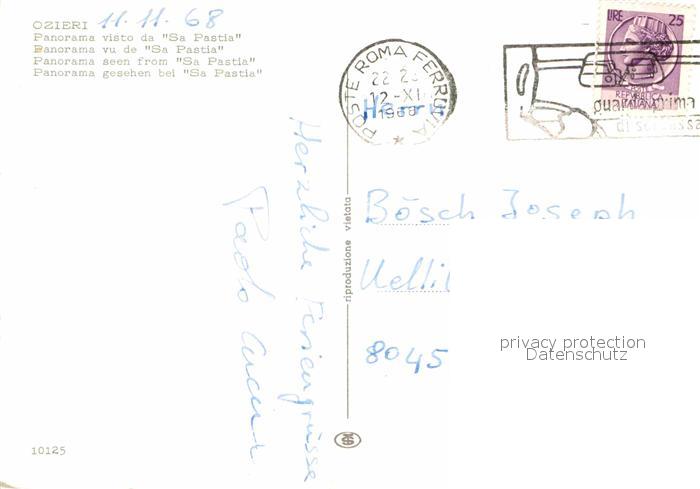 OZIERI 11.11.68
Panorama visto da "Sa Pastia"
Panorama vu de "Sa Pastia"
Panorama seen from "Sa Pastia"
Panorama gesehen bei "Sa Pastia"
POSTE ROMA FERROVIA
12-XI
LIRE 25
guar prima
di s
Herzliche Feriengrüsse
Paolo
riproduzione vietata
Herrn
Bösch Joseph
8045
privacy protection
Datenschutz
10125